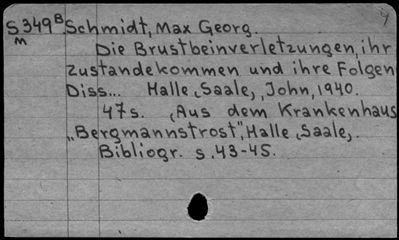 S349B Schmidt, Max Georg. y
M
Die Brustbeinverletzungen, ihr
zustandekommen und ihre Folgen
Diss... Halle, Saale, John, 1940.
47s. (Aus dem Krankenhaus
„Bergmannstrost", Halle, Saale,.
Bibliogr. s.43-45.